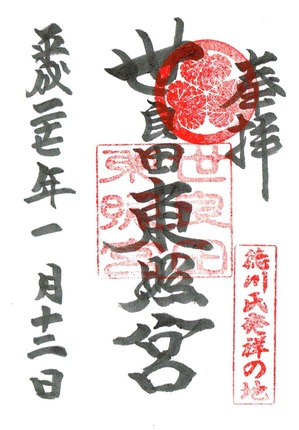 奉拝
徳川氏発祥の地
世良田東照宮
世良田
東照宮
平成二七年一月十二日